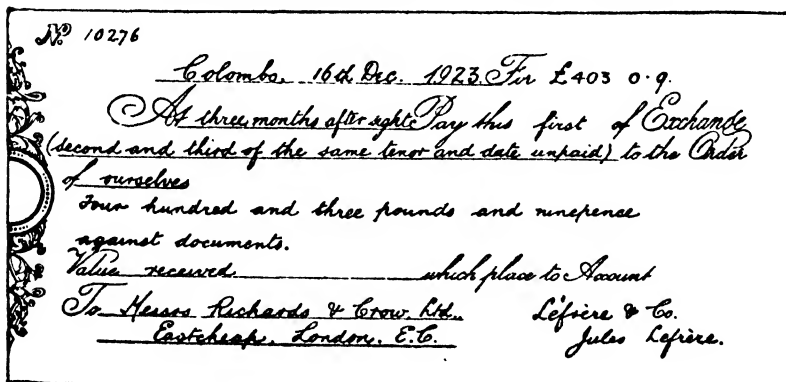 No. 10276
Colombo, 16th Dec. 1923. For £403 0.9.
At three months after sight Pay this first of Exchange
(second and third of the same tenor and date unpaid) to the Order
of ourselves
Four hundred and three pounds and ninepence
against documents.
Value received which place to Account
To Messrs Richards & Crow, Ltd., Lefrère & Co.
Eastcheap, London, E.C. Jules Lefrère.